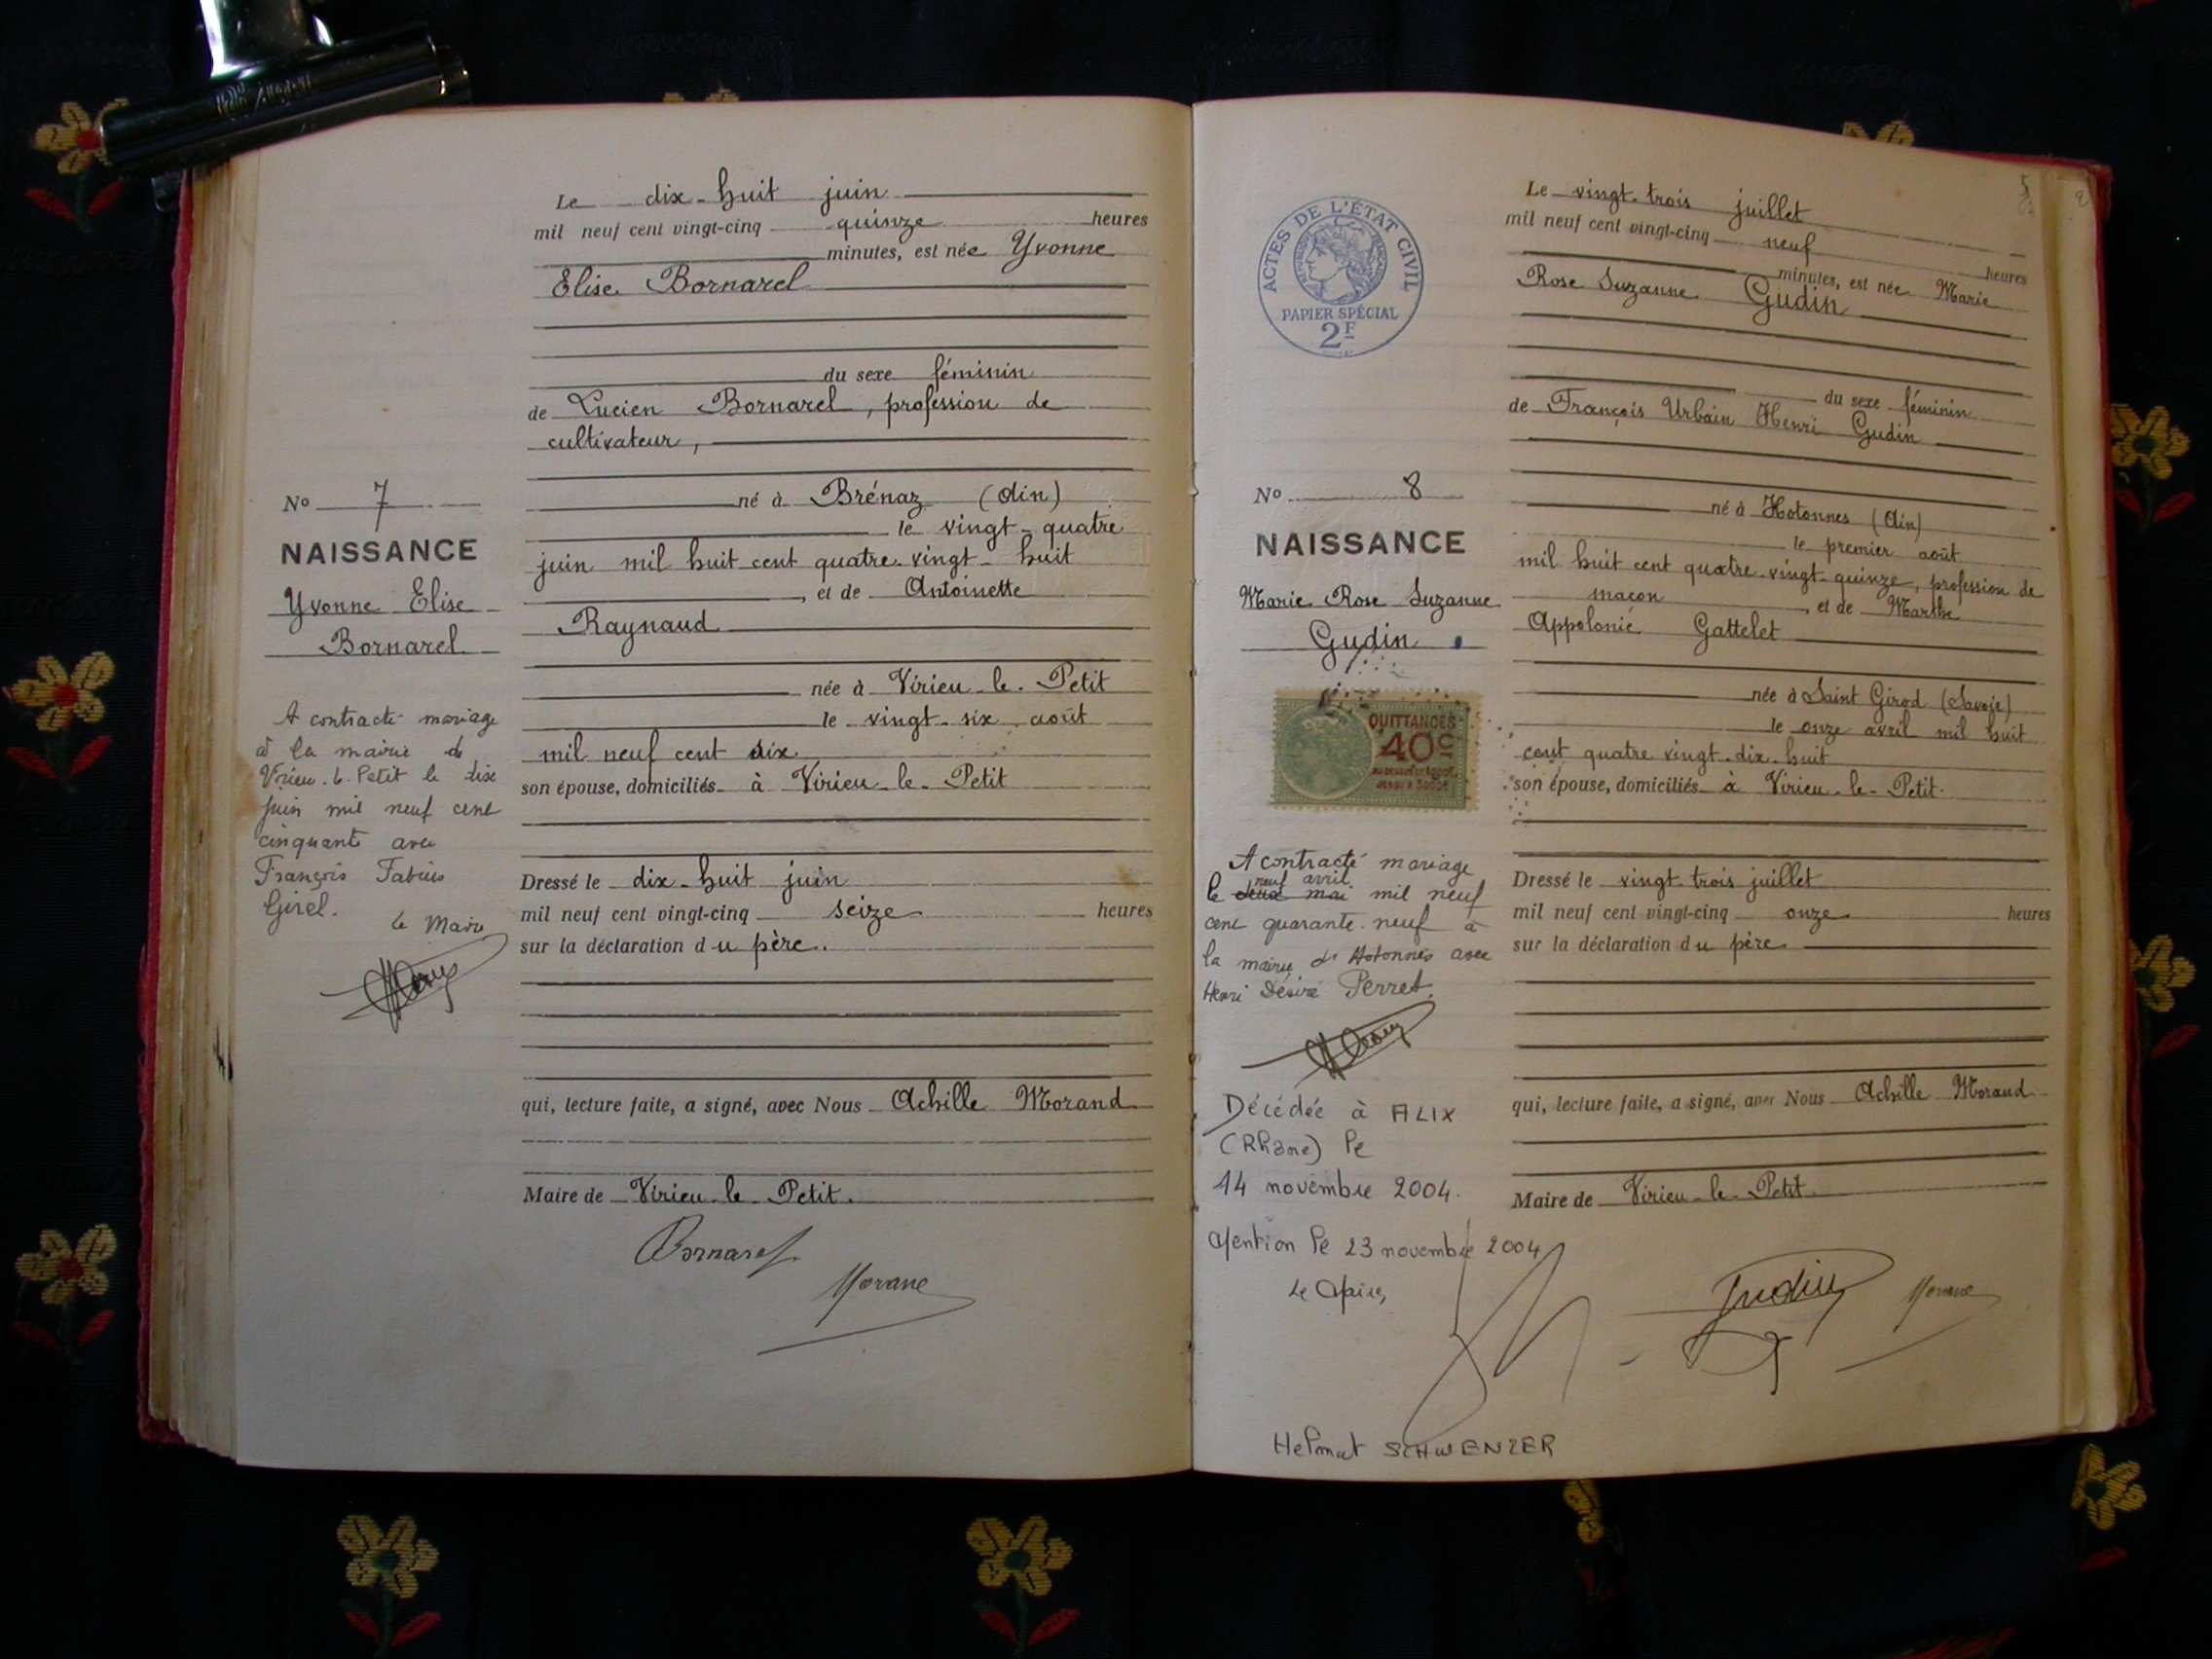 Le dix-huit juin
mil neuf cent vingt-cinq quinze heures
minutes, est née Yvonne
Elise Bornarel
du sexe féminin
de Lucien Bornarel, profession de
cultivateur,
né à Brénaz (Ain)
le vingt-quatre
juin mil huit cent quatre-vingt-huit
, et de Antoinette
Raynaud
née à Virieu-le-Petit
le vingt-six août
mil neuf cent dix
son épouse, domiciliés à Virieu-le-Petit
Dressé le dix-huit juin
mil neuf cent vingt-cinq seize heures
sur la déclaration du père.
qui, lecture faite, a signé, avec Nous Achille Morand
Maire de Virieu-le-Petit.
Bornarel
Morand
No 7
NAISSANCE
Yvonne Elise
Bornarel
A contracté mariage
à la mairie de
Virieu-le-Petit le dix
juin mil neuf cent
cinquante avec
François Fabius
Girel.
Le Maire
ACTES DE L'ÉTAT CIVIL
PAPIER SPÉCIAL
2F
No 8
NAISSANCE
Marie Rose Suzanne
Gudin
QUITTANCES
40c
A contracté mariage
neuf avril
le deux mai mil neuf
cent quarante-neuf à
la mairie de Hotonnes avec
Henri Désiré Perret.
Décédée à ALIX
(Rhône) le
14 novembre 2004.
Mention le 23 novembre 2004
Le Maire,
Helmut SCHWENZER
Le vingt-trois juillet
mil neuf cent vingt-cinq neuf
heures
minutes, est née Marie
Rose Suzanne Gudin
du sexe féminin
de François Urbain Henri Gudin
né à Hotonnes (Ain)
le premier août
mil huit cent quatre-vingt-quinze, profession de
maçon, et de Marthe
Appolonie Gattelet
née à Saint Girod (Savoie)
le onze avril mil huit
cent quatre vingt-dix-huit
son épouse, domiciliés à Virieu-le-Petit
Dressé le vingt-trois juillet
mil neuf cent vingt-cinq onze heures
sur la déclaration du père
qui, lecture faite, a signé, avec Nous Achille Morand
Maire de Virieu-le-Petit
Gudin
Morand